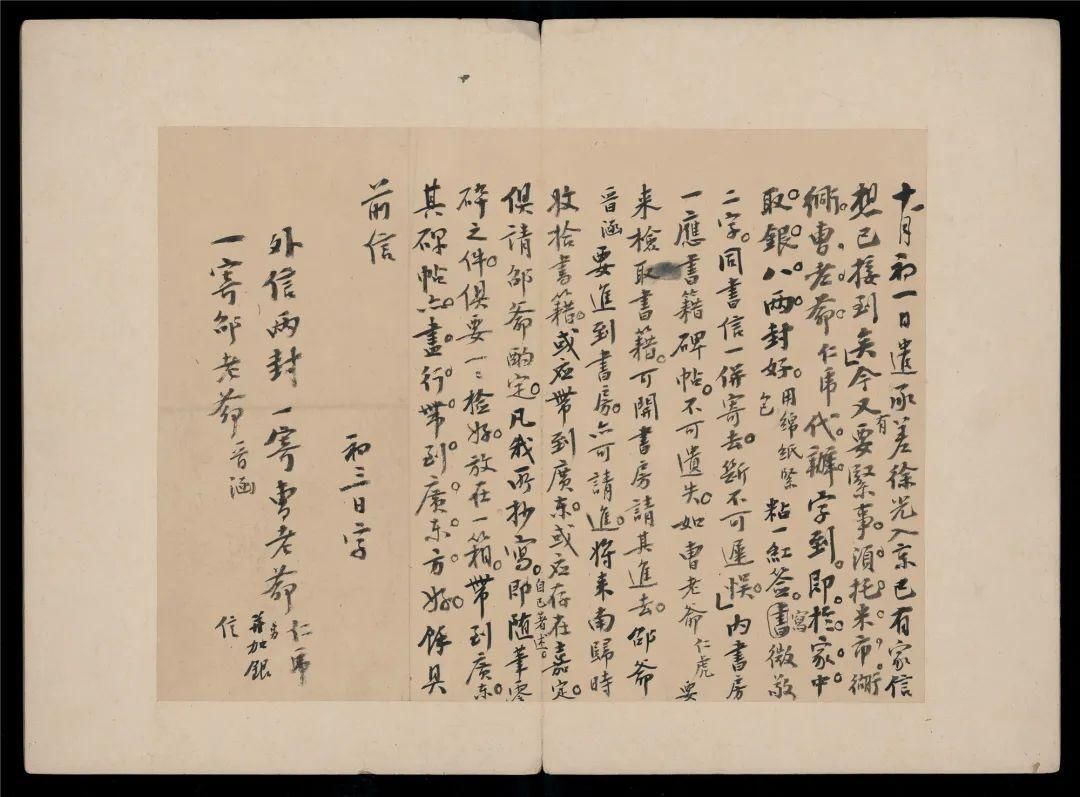 十月初一日遣承差徐光入京已有家信
想已接到矣今又有要緊事須托米市衚
衕曹老爺仁虎代辦字到即於家中
取銀八兩封好用綿紙緊包粘一紅簽寫書微敬
二字同書信一併寄去斷不可遲悞內書房
一應書籍碑帖不可遺失如曹老爺仁虎要
來檢取書籍可開書房請其進去邵爺
晉涵要進到書房亦可請進將來南歸時
收拾書籍或應帶到廣東或應存在嘉定
俱請邵爺酌定凡我所抄寫自己著述即隨筆零
碎之件俱要一一撿好放在一箱帶到廣東
其碑帖亦盡行帶到廣東方好餘具
前信
初三日字
外信兩封一寄曹老爺仁虎并加銀信
一寄邵老爺晉涵